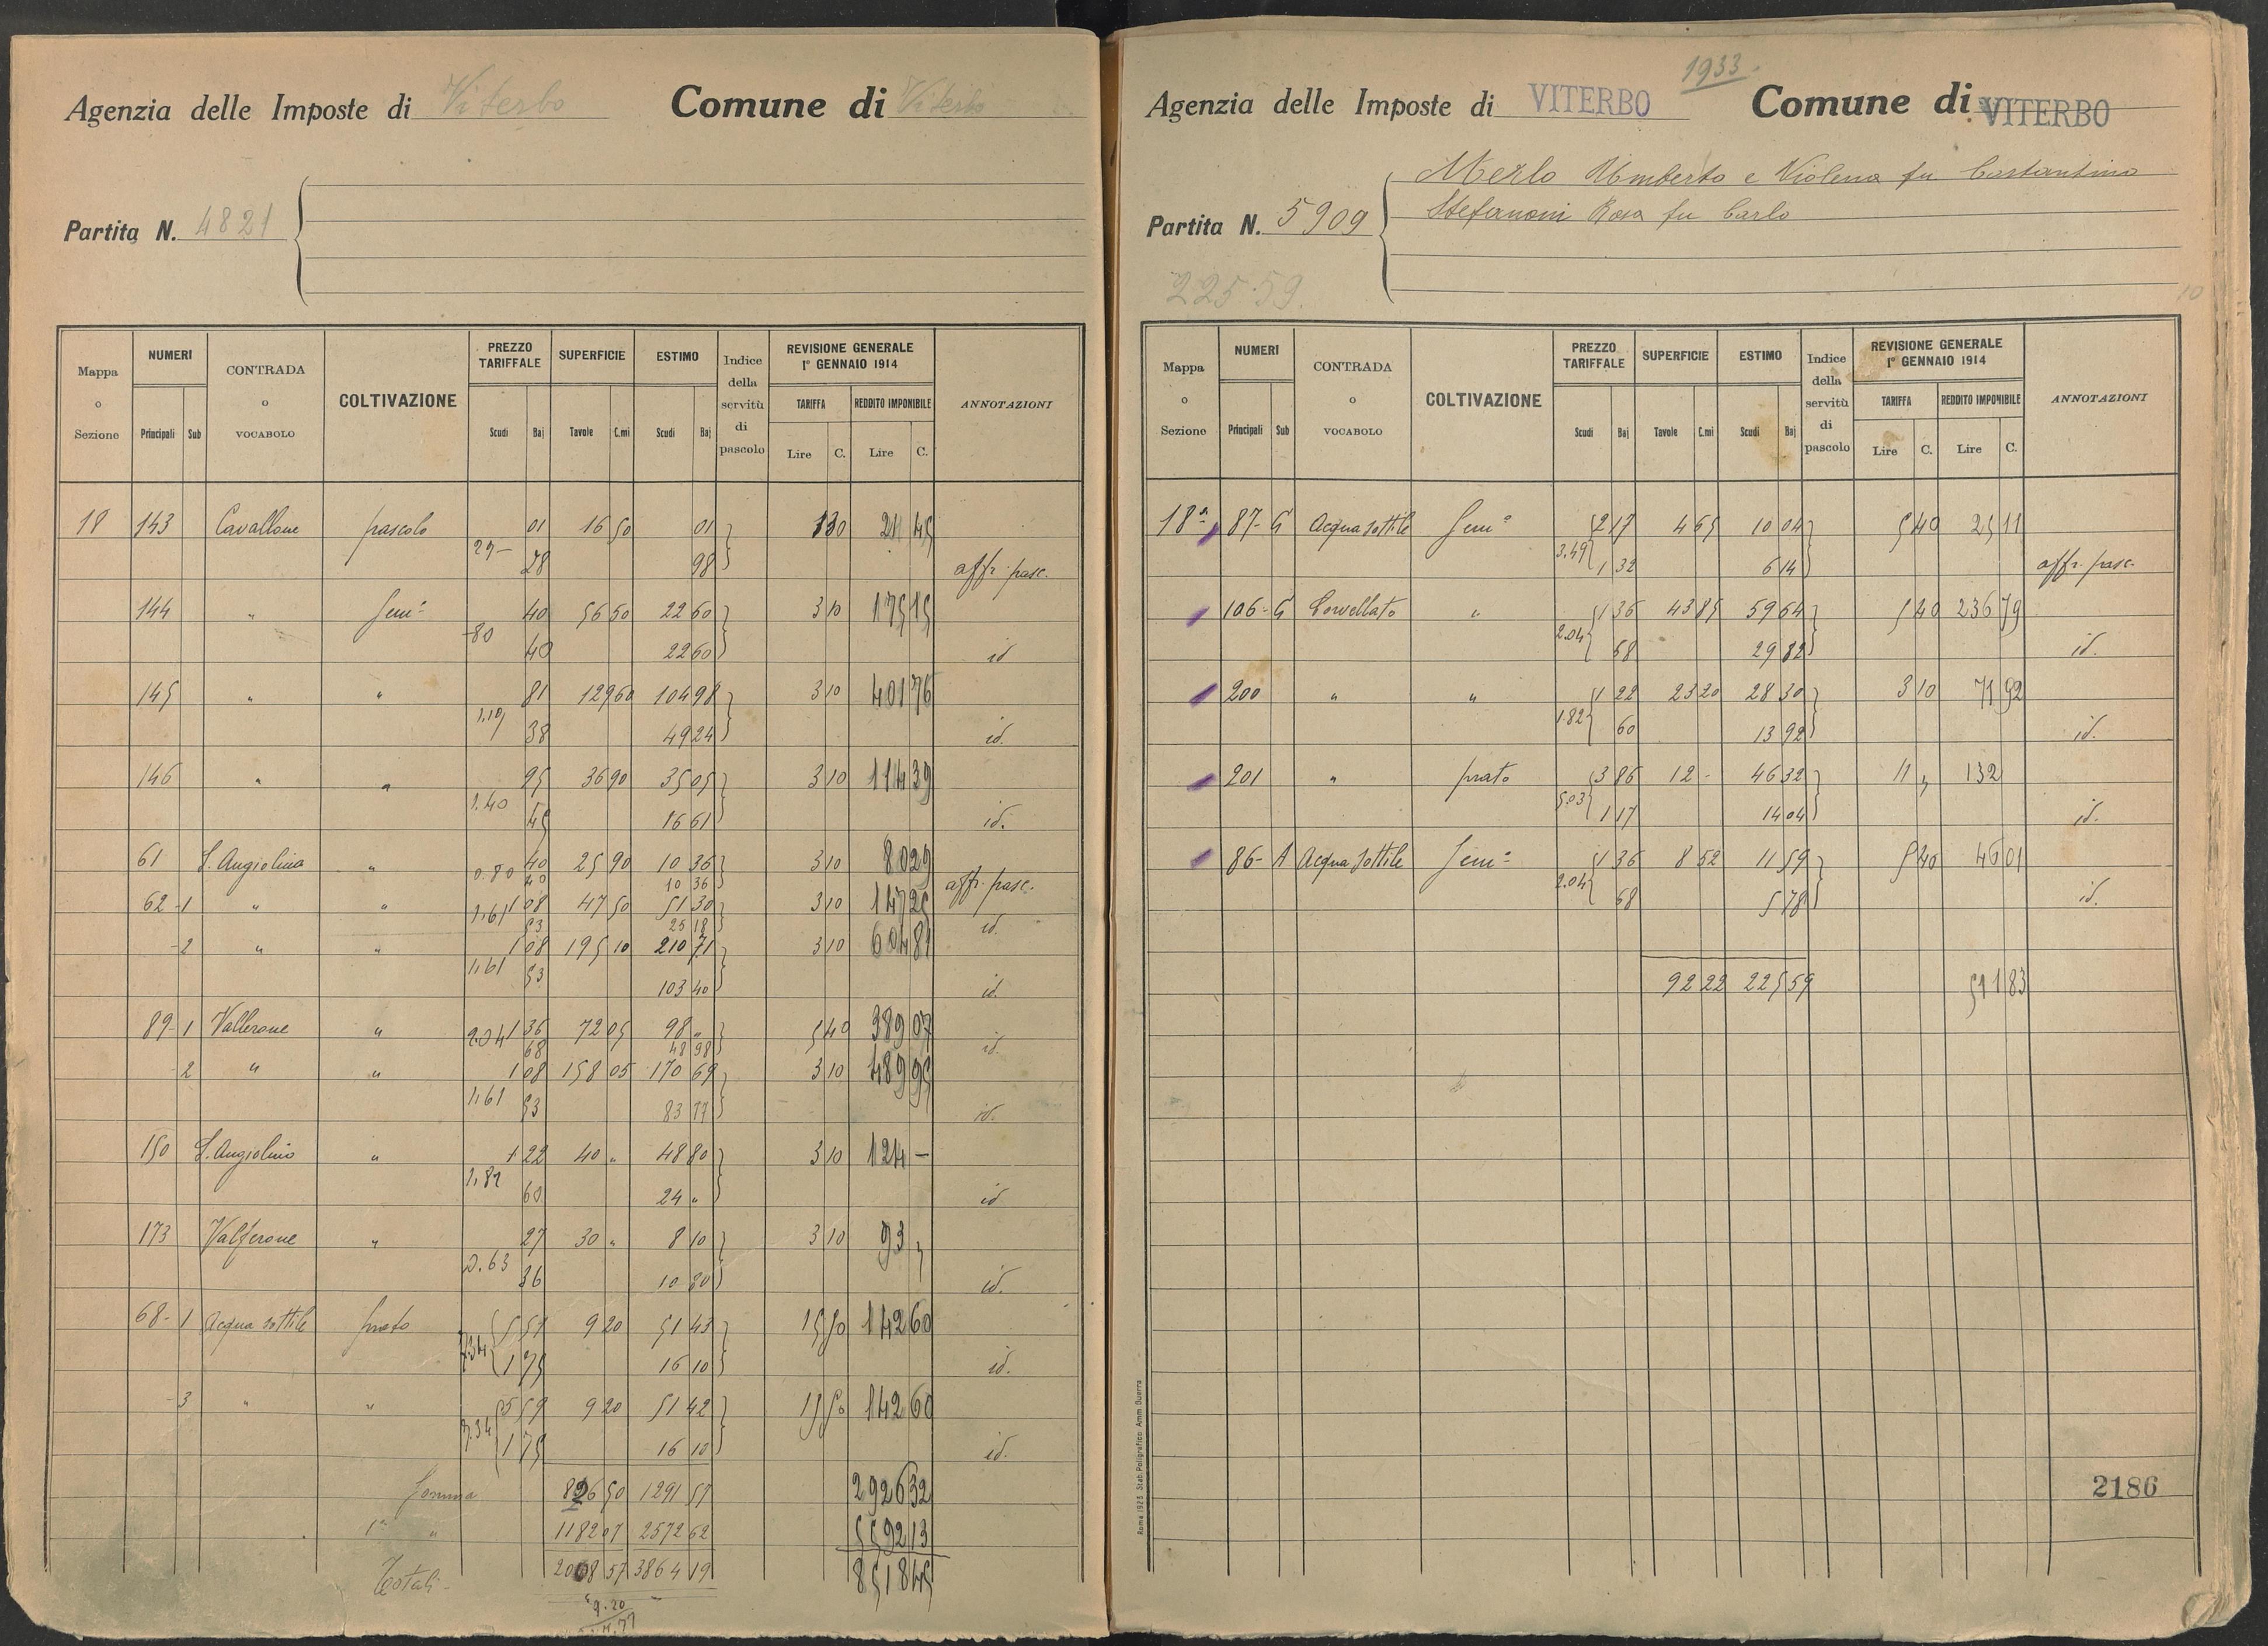 Agenzia delle Imposte di Viterbo Comune di Viterbo
Partita N. 4821
Mappa o Sezione NUMERI Principali Sub CONTRADA o VOCABOLO COLTIVAZIONE PREZZO TARIFFALE Scudi Baj SUPERFICIE Tavole C.mi ESTIMO Scudi Baj Indice della servitù di pascolo REVISIONE GENERALE 1° GENNAIO 1914 TARIFFA Lire C. REDDITO IMPONIBILE Lire C. ANNOTAZIONI
18 143 Cavallone pascolo 01 16 50 01 1 30 21 45
29 28 98 aff. pasc.
144 " Sem° 40 56 50 22 60 3 10 175 15
80 40 22 60 id
145 " " 81 129 60 104 98 3 10 401 76
1.19 38 49 24 id.
146 " " 95 36 90 35 05 3 10 114 39
1.40 45 16 61 id.
61 S. Angiolino " 40 25 90 10 36 3 10 80 29
0.80 40 10 36 aff. pasc.
62-1 " " 1 08 47 50 51 30 3 10 147 25
1.61 53 25 18 id.
-2 " " 1 08 195 10 210 71 3 10 604 81
1.61 53 103 40 id.
89-1 Vallerone " 1 36 72 05 98 " 5 40 389 07
2.04 68 48 98 id.
-2 " " 1 08 158 05 170 69 3 10 489 95
1.61 53 83 77 id.
150 S. Angiolino " 1 22 40 " 48 80 3 10 124 —
1.82 60 24 " id
173 Valferone " 27 30 " 8 10 3 10 93 "
0.63 36 10 80 id.
68-1 Acqua sottile prato 5 59 9 20 51 43 15 50 142 60
7.34 1 75 16 10 id.
-3 " " 5 59 9 20 51 42 15 50 142 60
7.34 1 75 16 10 id.
Somma 826 50 1291 57 2926 32
1ª " 1182 07 2572 62 5592 13
Totali 2008 57 3864 19 8518 45
9.20
1933.
Agenzia delle Imposte di VITERBO Comune di VITERBO
Merlo Umberto e Violena fu Costantino
Partita N. 5909 Stefanoni Rosa fu Carlo
225 59.
10
Mappa o Sezione NUMERI Principali Sub CONTRADA o VOCABOLO COLTIVAZIONE PREZZO TARIFFALE Scudi Baj SUPERFICIE Tavole C.mi ESTIMO Scudi Baj Indice della servitù di pascolo REVISIONE GENERALE 1° GENNAIO 1914 TARIFFA Lire C. REDDITO IMPONIBILE Lire C. ANNOTAZIONI
18ª 87-G Acqua sottile Sem° 2 17 4 65 10 04 5 40 25 11
3.49 1 32 6 14 aff. pasc.
106-G Corvellato " 1 36 43 85 59 64 5 40 236 79
2.04 68 29 82 id.
200 " " 1 22 23 20 28 30 3 10 71 92
1.82 60 13 92 id.
201 " prato 3 86 12 - 46 32 11 " 132
5.03 1 17 14 04 id.
86-A Acqua Sottile Sem° 1 36 8 52 11 59 5 40 46 01
2.04 68 5 78 id.
92 22 225 59 511 83
2186
Roma 1925 Stab. Poligrafico Amm Guerra